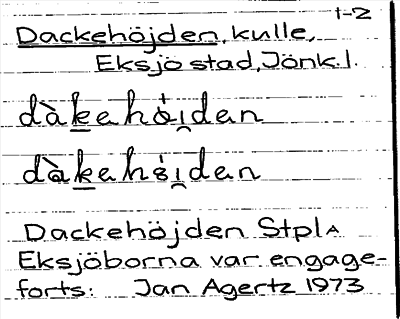 1-2
Dackehöjden, kulle,
Eksjö stad, Jönk.l.
dàkehöi̯den
dàkehöi̯den
Dackehöjden StplA
Eksjöborna var engage-
forts: Jan Agertz 1973